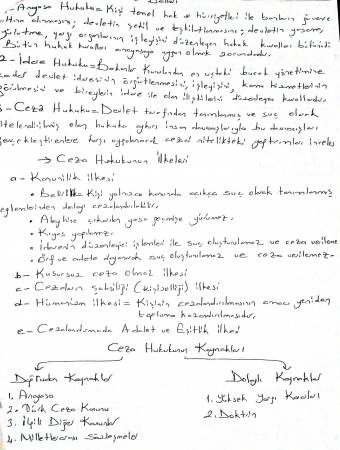 1- Anayasa Hukuku= Kişi temel hak ve hürriyetleri ile bunların güvence
altına alınmasını; devletin şekil ve teşkilatlanmasını; devletin yasama,
yürütme, yargı organlarının işleyişini düzenleyen hukuk kuralları bütünüdür.
Bütün hukuk kuralları anayasaya uygun olmak zorundadır.
2- İdare Hukuku= Bakanlar Kurulundan en üstteki bucak yönetimine
kadar devlet idaresinin örgütlenmesini, işleyişini, kamu hizmetlerinin
görülmesini ve bireylerin idare ile olan ilişkilerini düzenleyen kurallardır.
3- Ceza Hukuku= Devlet tarafından tanımlanmış ve suç olarak
nitelendirilmiş olan hukuka aykırı insan davranışlarıyla bu davranışları
gerçekleştirenlere karşı uygulanacak cezai nitelikteki yaptırımları inceler
→ Ceza Hukukunun İlkeleri
a- Kanunilik ilkesi
• Belirlilik Kişi yalnızca kanunda açıkça suç olarak tanımlanmış
eylemlerinden dolayı cezalandırılabilir.
• Aleyhine çıkarılan yasa geçmişe yürümez.
• Kıyas yapılamaz.
• İdarenin düzenleyici işlemleri ile suç oluşturulamaz ve ceza verilemez
• Örf ve adete dayanarak suç oluşturulamaz ve ceza verilemez.
b- Kusursuz ceza olmaz ilkesi
c- Cezaların şahsiliği (Kişiselliği) İlkesi
d- Hümanizm ilkesi= Kişinin cezalandırılmasının amacı yeniden
topluma kazandırılmasıdır.
e- Cezalandırmada Adalet ve Eşitlik İlkesi
Ceza Hukukunun Kaynakları
Doğrudan Kaynaklar
1. Anayasa
2. Türk Ceza Kanunu
3. İlgili Diğer Kanunlar
4. Milletlerarası Sözleşmeler
Dolaylı Kaynaklar
1. Yüksek Yargı Kararları
2. Doktrin